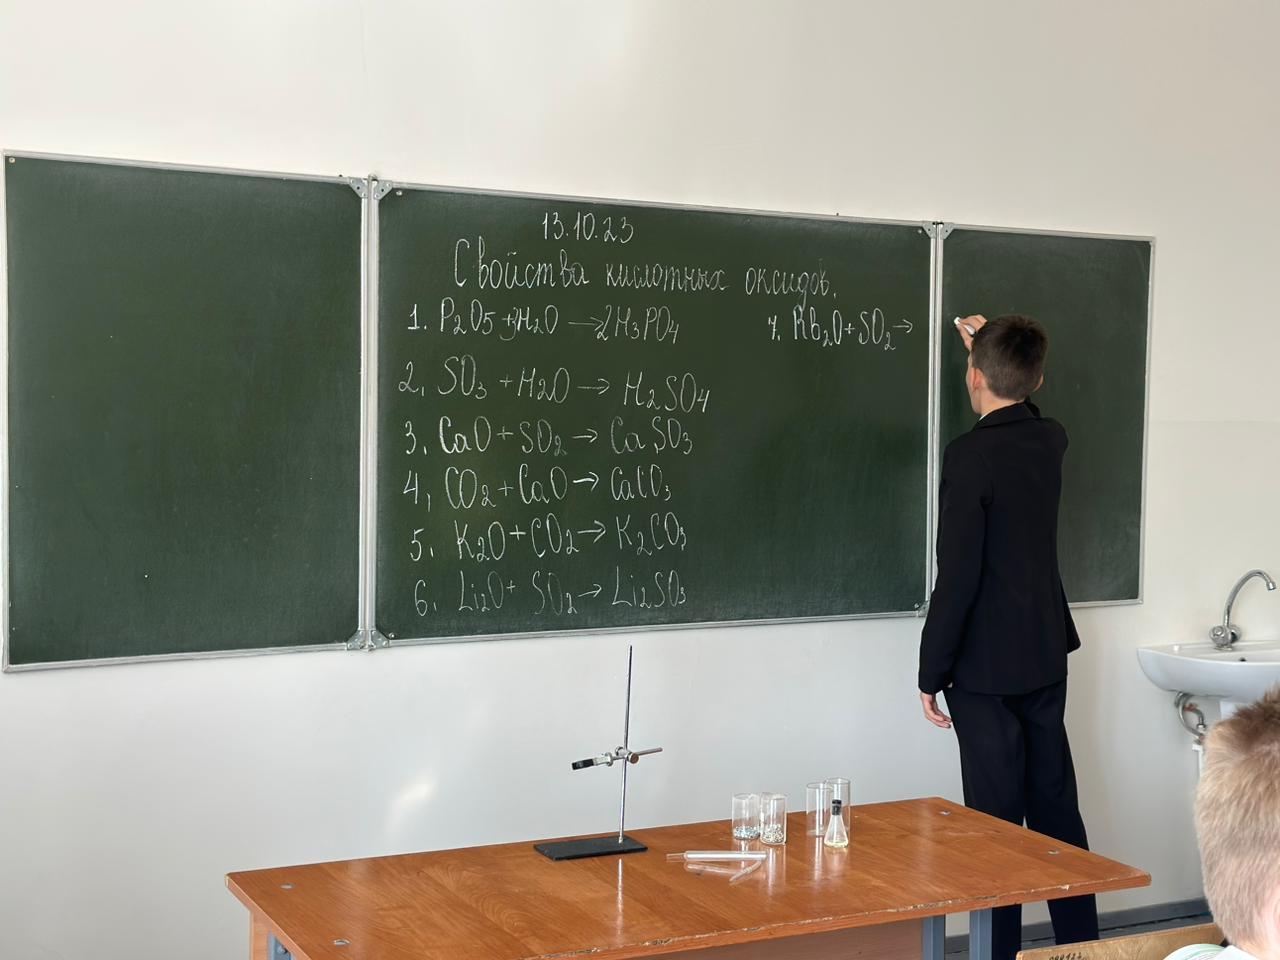 13.10.23
Свойства кислотных оксидов.
1. P₂O₅ + 3H₂O → 2H₃PO₄
2. SO₃ + H₂O → H₂SO₄
3. CaO + SO₂ → CaSO₃
4. CO₂ + CaO → CaCO₃
5. K₂O + CO₂ → K₂CO₃
6. Li₂O + SO₂ → Li₂SO₃
7. Rb₂O + SO₂ →